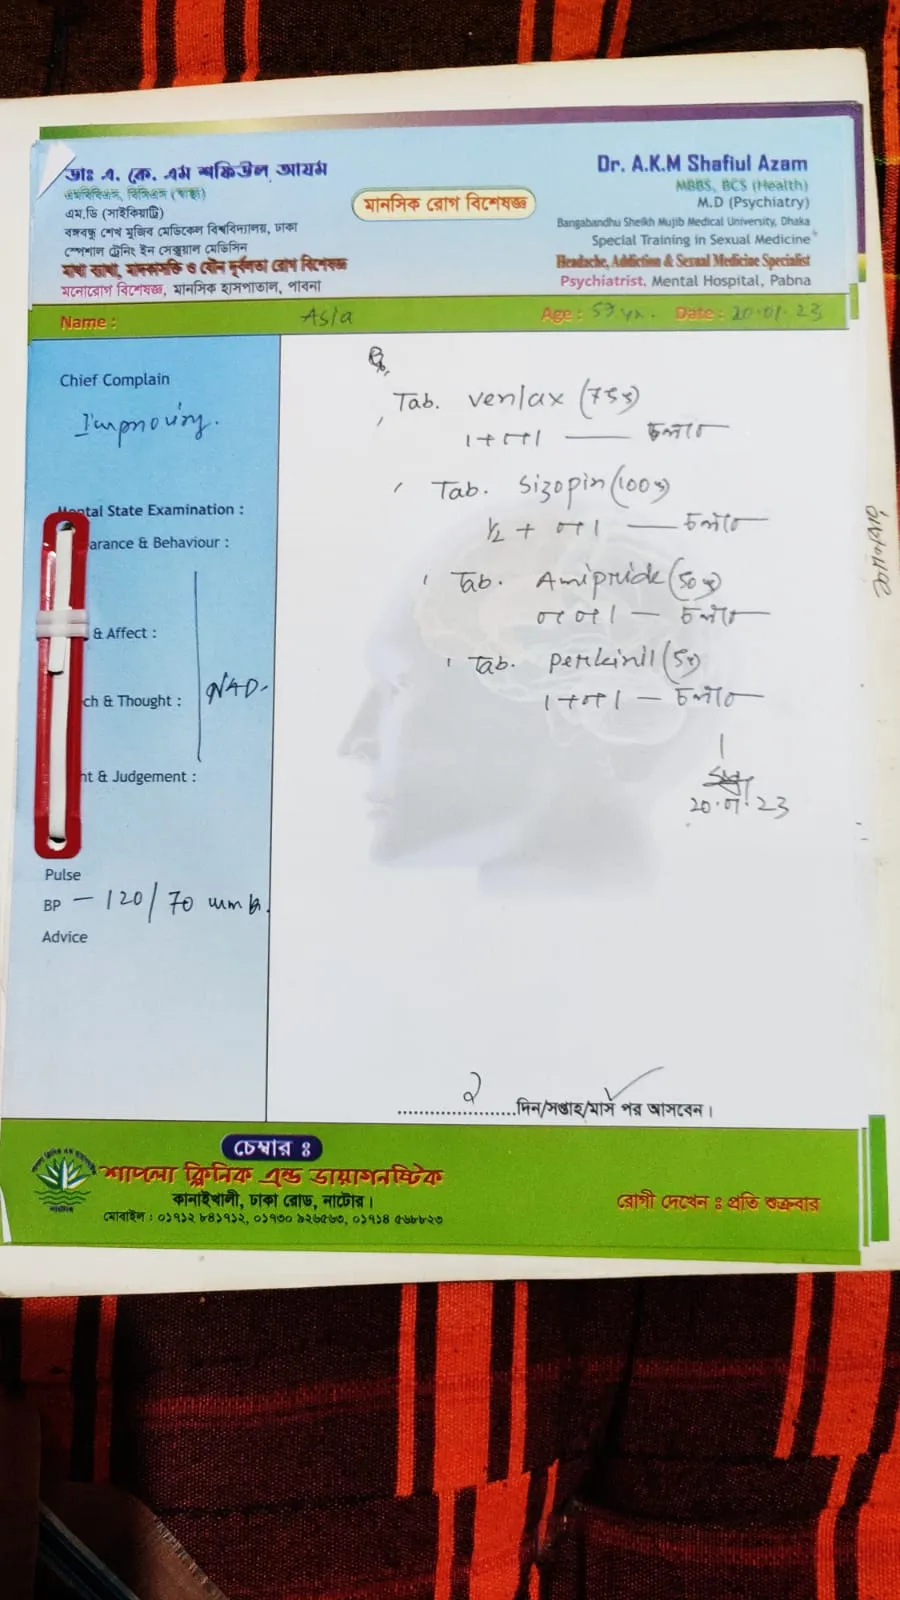 ডাঃ এ. কে. এম শফিউল আযম
এমবিবিএস, বিসিএস (স্বাস্থ্য)
এম.ডি (সাইকিয়াট্রি)
বঙ্গবন্ধু শেখ মুজিব মেডিকেল বিশ্ববিদ্যালয়, ঢাকা
স্পেশাল ট্রেনিং ইন সেক্সুয়াল মেডিসিন
মাথা ব্যথা, মাদকাসক্তি ও যৌন দূর্বলতা রোগ বিশেষজ্ঞ
মনোরোগ বিশেষজ্ঞ, মানসিক হাসপাতাল, পাবনা
মানসিক রোগ বিশেষজ্ঞ
Dr. A.K.M Shafiul Azam
MBBS, BCS (Health)
M.D (Psychiatry)
Bangabandhu Sheikh Mujib Medical University, Dhaka
Special Training in Sexual Medicine
Headache, Addiction & Sexual Medicine Specialist
Psychiatrist, Mental Hospital, Pabna
Name : Asia Age : 53 yr. Date : 20.01.23
Chief Complain
Improving.
Mental State Examination :
arance & Behaviour :
& Affect :
ch & Thought :
NAD.
nt & Judgement :
Pulse
BP - 120/70 mm
Advice
Rx,
Tab. Venlax (75)
1+0+1 — চলবে
Tab. Sizopin (100)
½ + 0+1 — চলবে
Tab. Amipride (50)
0+0+1 — চলবে
Tab. Perkinil (5)
1+0+1 — চলবে
20.01.23
২ দিন/সপ্তাহ/মাস পর আসবেন।
চেম্বার ঃ
শাপলা ক্লিনিক এন্ড ডায়াগনষ্টিক
কানাইখালী, ঢাকা রোড, নাটোর।
মোবাইল : ০১৭১২ ৮৪১৭১২, ০১৭৩০ ৯২৬৫৬৩, ০১৭১৪ ৫৬৮৮২৩
রোগী দেখেন ঃ প্রতি শুক্রবার